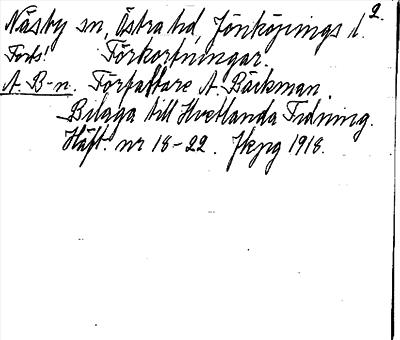 Näsby sn, Östra hd, Jönköpings l. 2.
Forts! Förkortningar.
A. B-n. Författare A. Bäckman.
Bilaga till Hvetlanda Tidning.
Häft. nr 18-22. Jkpg 1918.